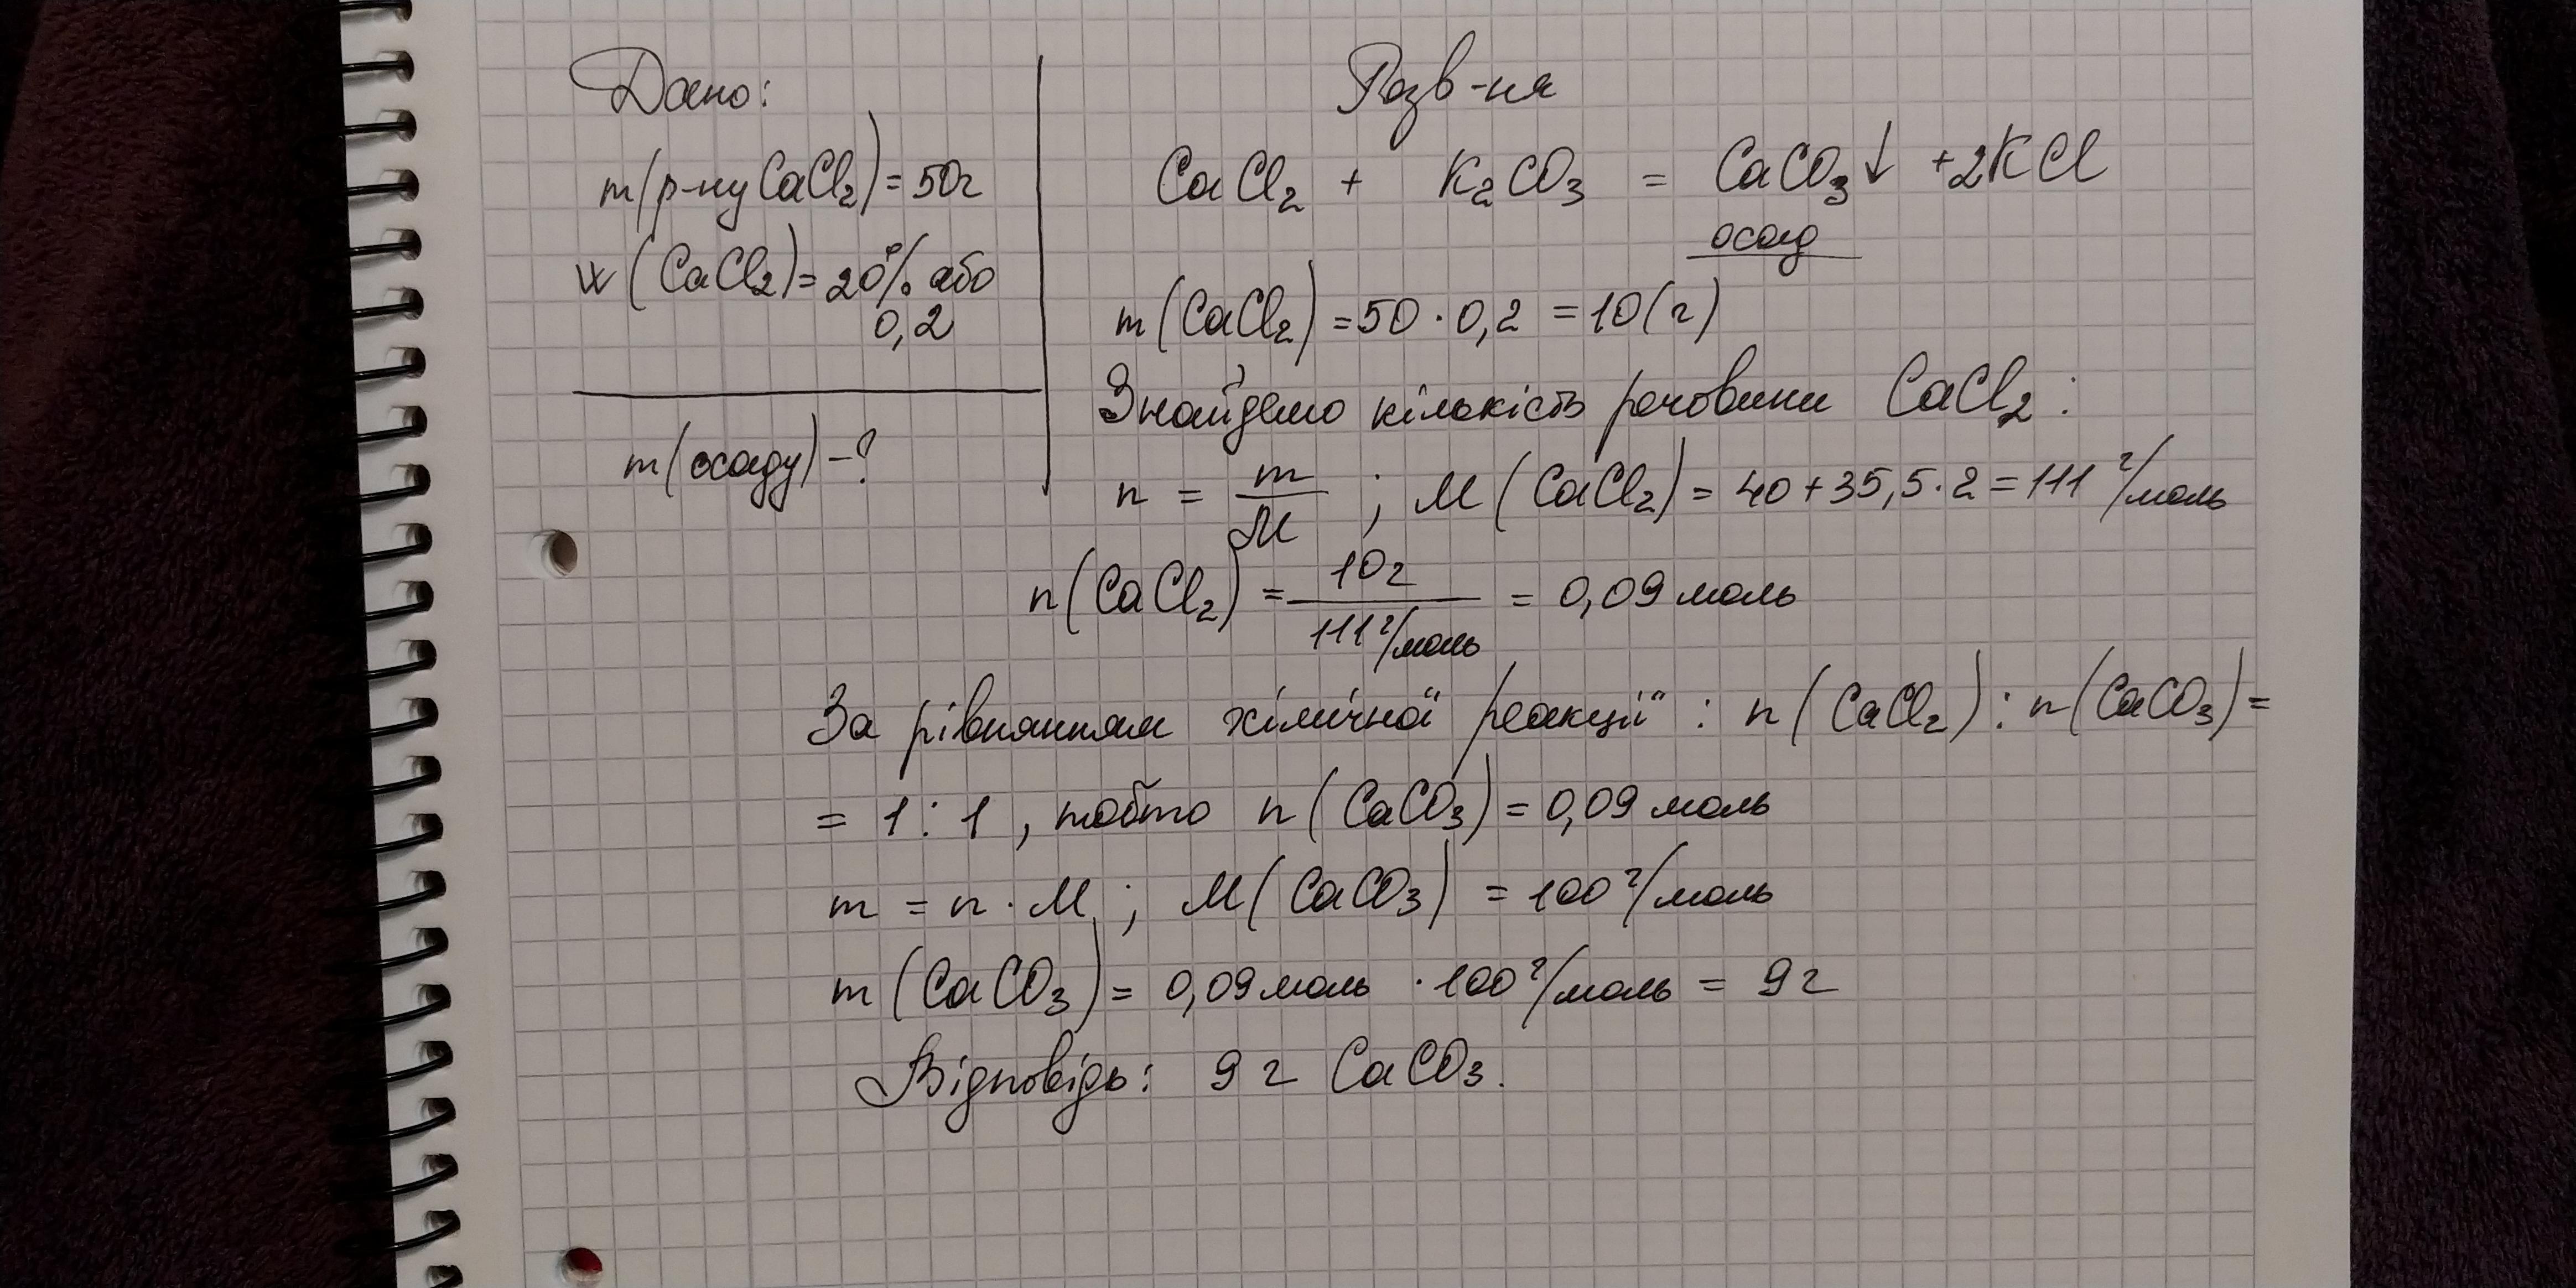 Дано:
m(р-ну CaCl₂) = 50г
w(CaCl₂) = 20% або
0,2
m(осаду) - ?
Розв-ня
CaCl₂ + K₂CO₃ = CaCO₃↓ + 2KCl
осад
m(CaCl₂) = 50 · 0,2 = 10(г)
Знайдемо кількість речовини CaCl₂:
n = m/M ; M(CaCl₂) = 40 + 35,5 · 2 = 111 г/моль
n(CaCl₂) = 10г / 111 г/моль = 0,09 моль
За рівнянням хімічної реакції : n(CaCl₂) : n(CaCO₃) =
= 1 : 1 , тобто n(CaCO₃) = 0,09 моль
m = n · M ; M(CaCO₃) = 100 г/моль
m(CaCO₃) = 0,09 моль · 100 г/моль = 9 г
Відповідь: 9 г CaCO₃.